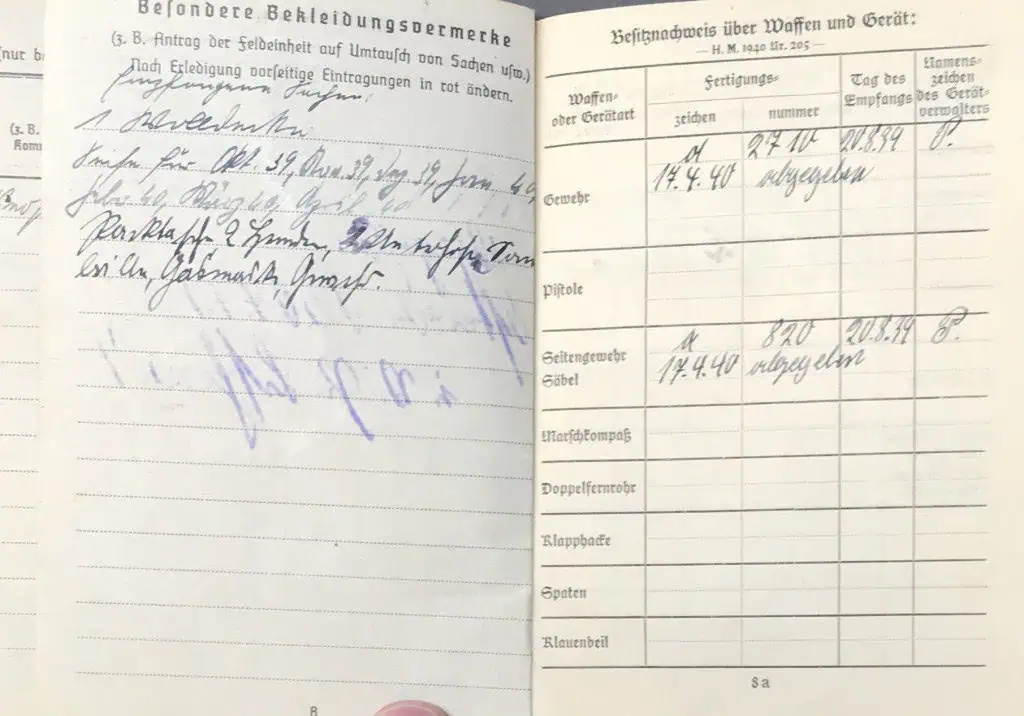 (nur b
(z. B.
Kom
Besondere Bekleidungsvermerke
(z. B. Antrag der Feldeinheit auf Umtausch von Sachen usw.)
Nach Erledigung vorseitige Eintragungen in rot ändern.
Empfangene Sachen:
1 Wolldecke
Seife für Okt. 39, Nov. 39, Dez. 39, Jan. 40,
Febr. 40, März 40, April 40
Packtasche 2 Hemden, 2 Unterhose,
Gasmaske,
8
Besitznachweis über Waffen und Gerät:
— H. M. 1940 Nr. 205 —
Waffen- oder Gerätart
Fertigungs-
zeichen
nummer
Tag des Empfangs
Namens- zeichen des Gerät- verwalters
Gewehr
a 2710 20.8.39 P.
17.4.40 abgegeben
Pistole
Seitengewehr
Säbel
a 820 20.8.39 P.
17.4.40 abgegeben
Marschkompaß
Doppelfernrohr
Klapphacke
Spaten
Klauenbeil
8a